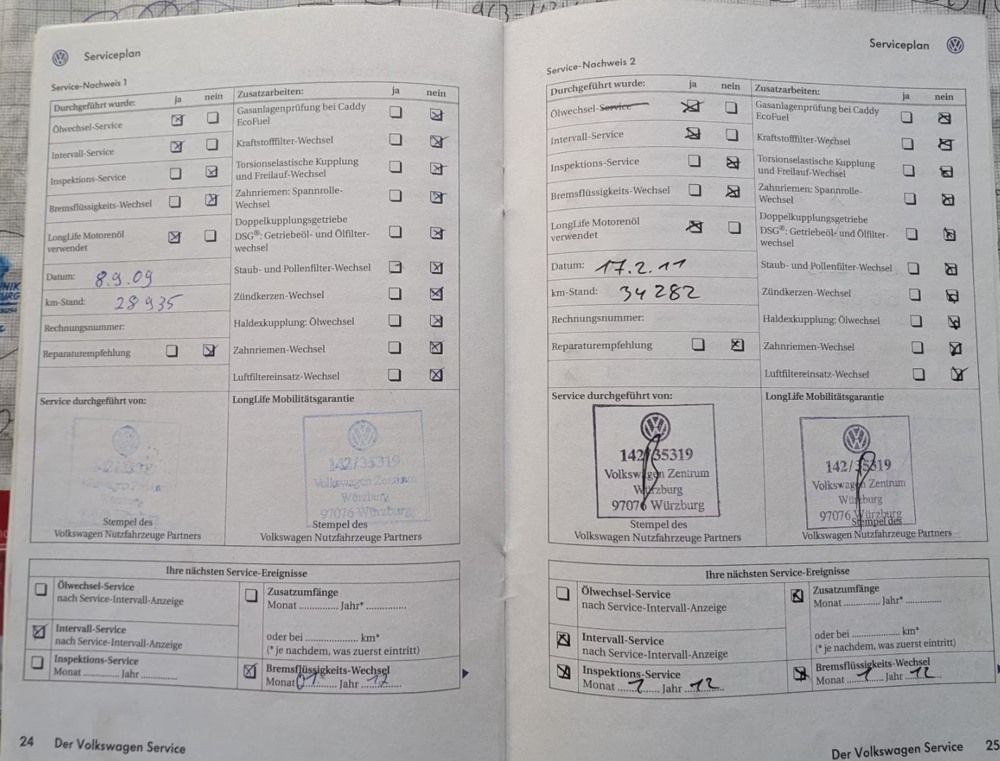 Serviceplan
Service-Nachweis 1
Durchgeführt wurde: ja nein
Ölwechsel-Service
Intervall-Service
Inspektions-Service
Bremsflüssigkeits-Wechsel
LongLife Motorenöl
verwendet
Datum: 8.9.09
km-Stand: 28935
Rechnungsnummer:
Reparaturempfehlung
Zusatzarbeiten: ja nein
Gasanlagenprüfung bei Caddy
EcoFuel
Kraftstofffilter-Wechsel
Torsionselastische Kupplung
und Freilauf-Wechsel
Zahnriemen: Spannrolle-
Wechsel
Doppelkupplungsgetriebe
DSG®: Getriebeöl- und Ölfilter-
wechsel
Staub- und Pollenfilter-Wechsel
Zündkerzen-Wechsel
Haldexkupplung: Ölwechsel
Zahnriemen-Wechsel
Luftfiltereinsatz-Wechsel
Service durchgeführt von:
Stempel des
Volkswagen Nutzfahrzeuge Partners
LongLife Mobilitätsgarantie
142/35319
Volkswagen Zentrum
Würzburg
97076 Würzburg
Stempel des
Volkswagen Nutzfahrzeuge Partners
Ihre nächsten Service-Ereignisse
Ölwechsel-Service
nach Service-Intervall-Anzeige
Intervall-Service
nach Service-Intervall-Anzeige
Inspektions-Service
Monat ............ Jahr ............
Zusatzumfänge
Monat ............ Jahr* ............
oder bei ................ km*
(* je nachdem, was zuerst eintritt)
Bremsflüssigkeits-Wechsel
Monat 01 Jahr 12
24 Der Volkswagen Service
Serviceplan
Service-Nachweis 2
Durchgeführt wurde: ja nein
Ölwechsel-Service
Intervall-Service
Inspektions-Service
Bremsflüssigkeits-Wechsel
LongLife Motorenöl
verwendet
Datum: 17.2.11
km-Stand: 34282
Rechnungsnummer:
Reparaturempfehlung
Zusatzarbeiten: ja nein
Gasanlagenprüfung bei Caddy
EcoFuel
Kraftstofffilter-Wechsel
Torsionselastische Kupplung
und Freilauf-Wechsel
Zahnriemen: Spannrolle-
Wechsel
Doppelkupplungsgetriebe
DSG®: Getriebeöl- und Ölfilter-
wechsel
Staub- und Pollenfilter-Wechsel
Zündkerzen-Wechsel
Haldexkupplung: Ölwechsel
Zahnriemen-Wechsel
Luftfiltereinsatz-Wechsel
Service durchgeführt von:
142/35319
Volkswagen Zentrum
Würzburg
97076 Würzburg
Stempel des
Volkswagen Nutzfahrzeuge Partners
LongLife Mobilitätsgarantie
142/35319
Volkswagen Zentrum
Würzburg
97076 Würzburg
Stempel des
Volkswagen Nutzfahrzeuge Partners
Ihre nächsten Service-Ereignisse
Ölwechsel-Service
nach Service-Intervall-Anzeige
Intervall-Service
nach Service-Intervall-Anzeige
Inspektions-Service
Monat 1 Jahr 12
Zusatzumfänge
Monat ............ Jahr* ............
oder bei ................ km*
(* je nachdem, was zuerst eintritt)
Bremsflüssigkeits-Wechsel
Monat 1 Jahr 12
Der Volkswagen Service 25